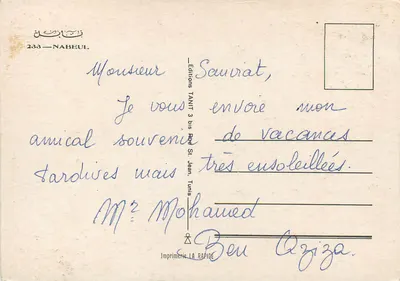 نابل
233 — NABEUL
Monsieur Sauviat,
Je vous envoie mon
amical souvenir de vacances
tardives mais très ensoleillées.
Mr Mohamed
Ben Aziza.
Editions TANIT 3 bis Rue St Jean, Tunis
Imprimerie LA RAPIDE